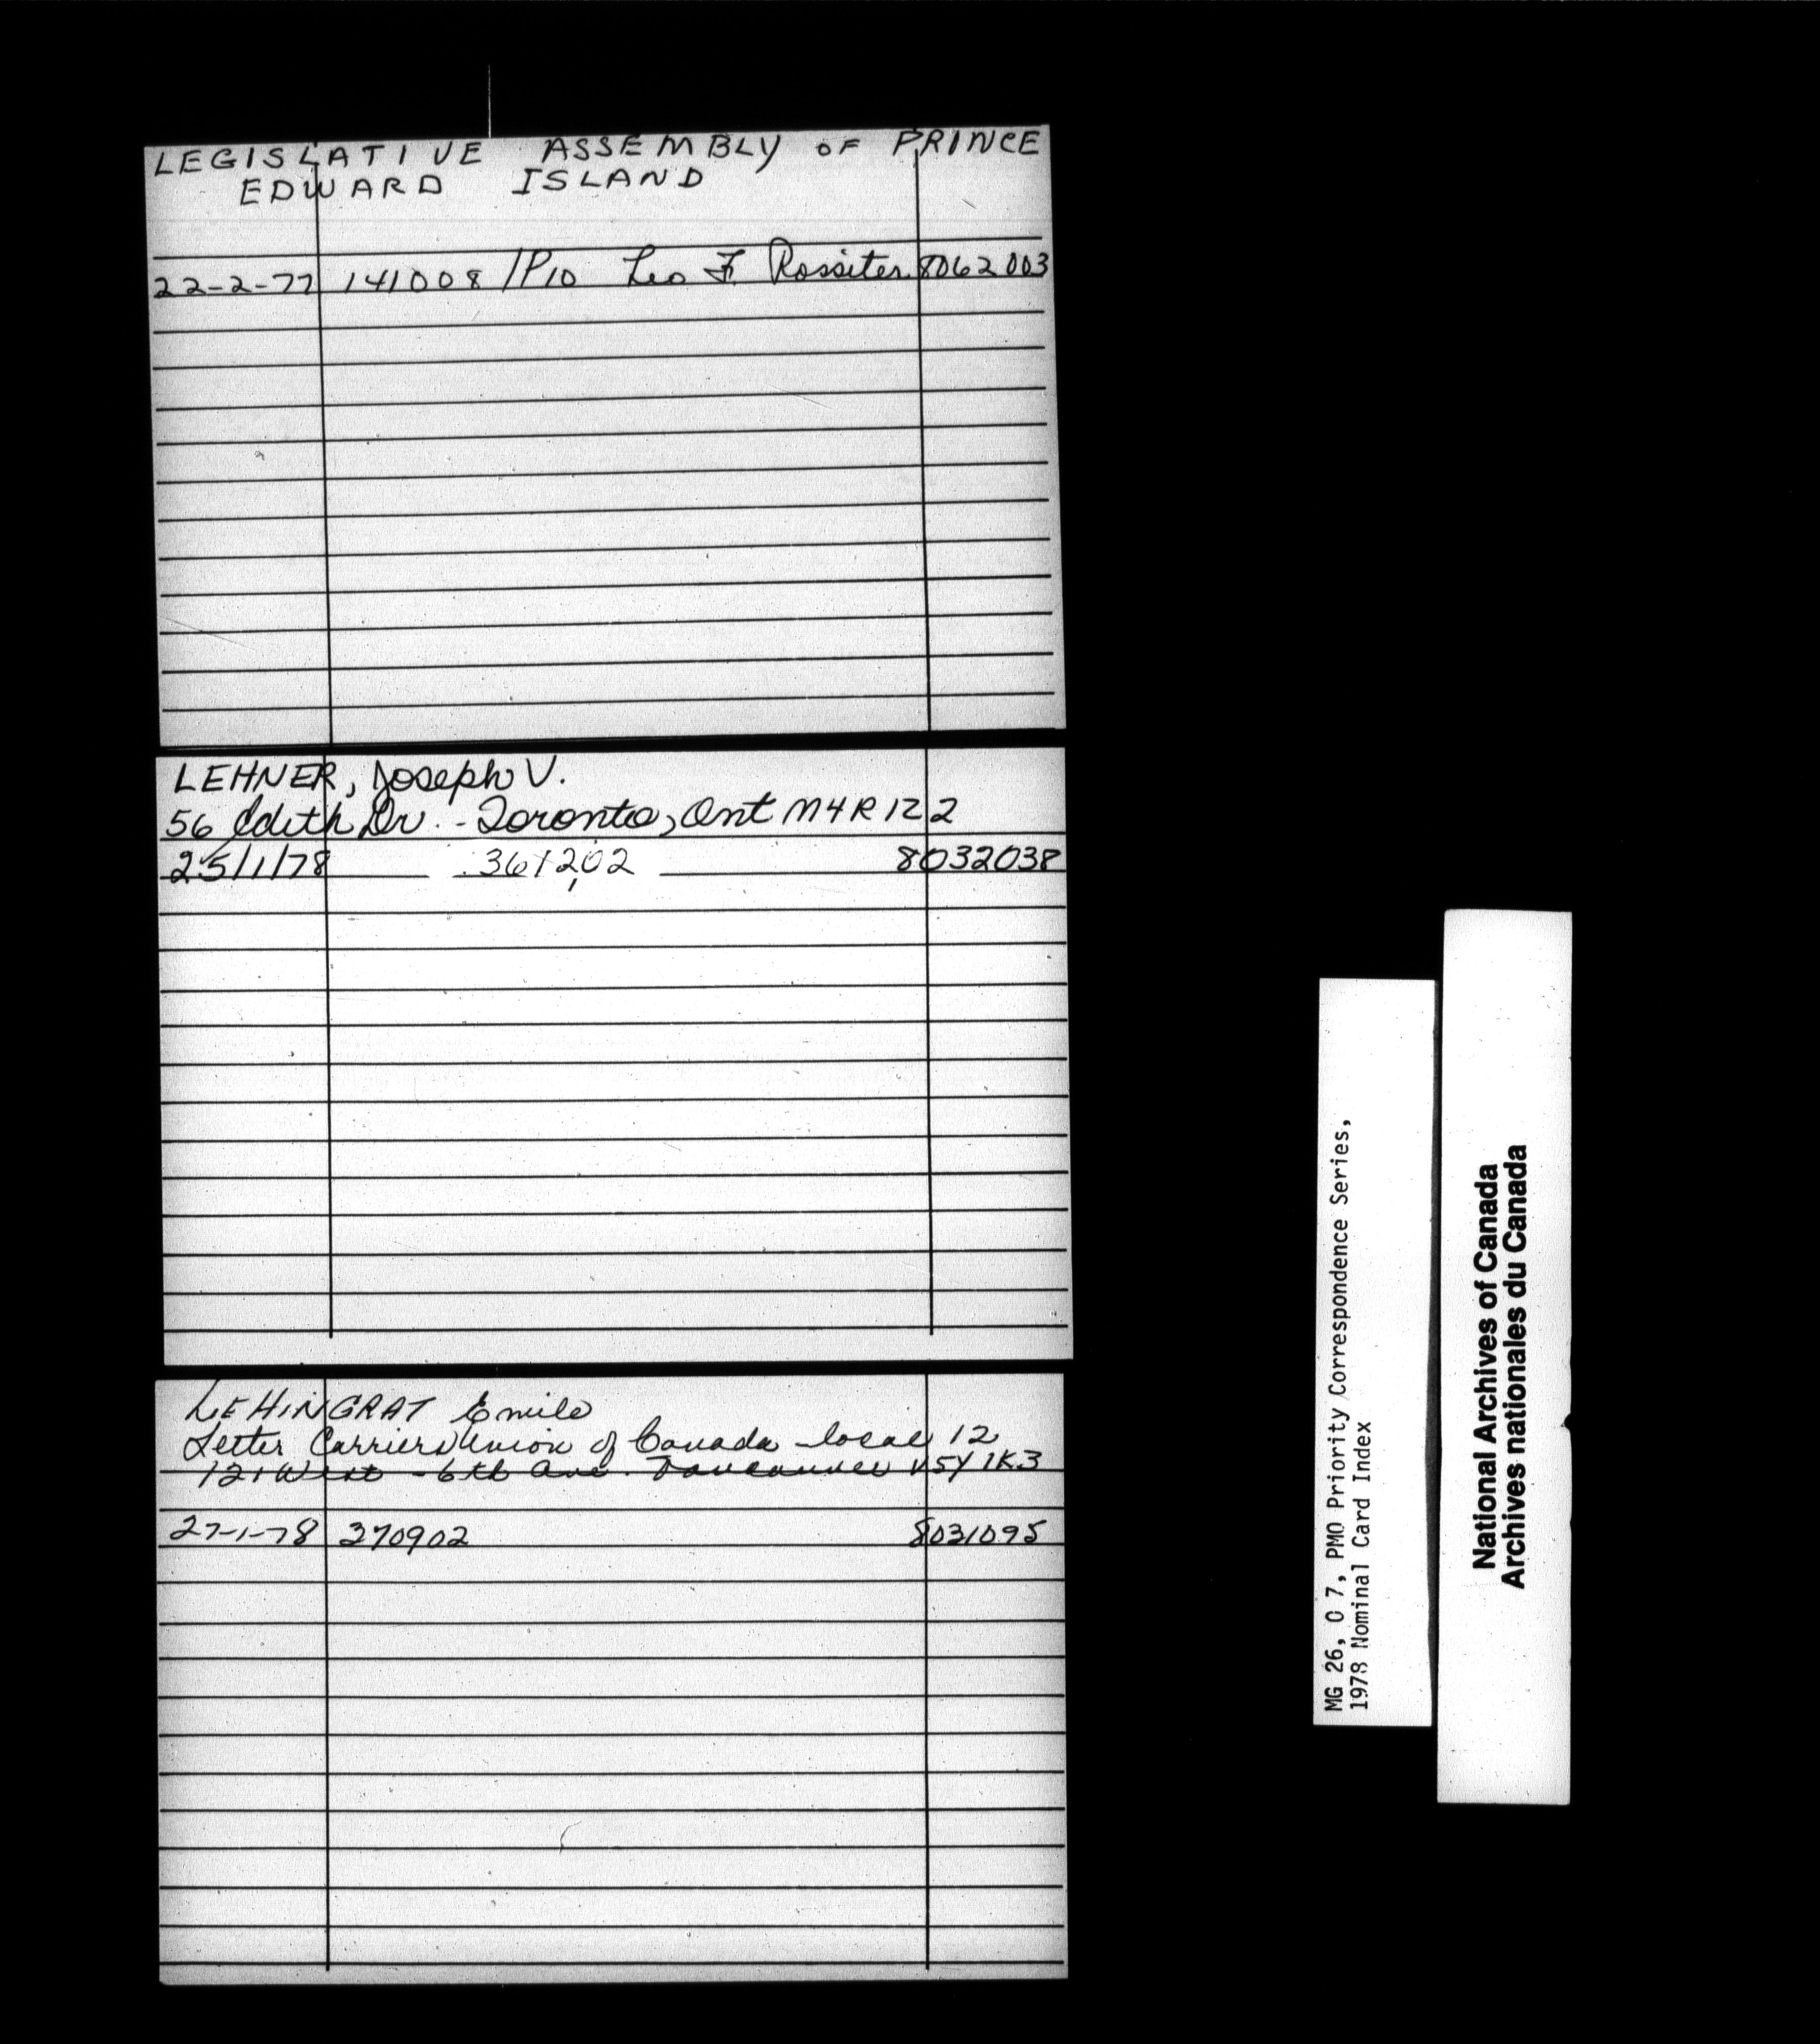 LEGISLATIVE ASSEMBLY OF PRINCE
EDWARD ISLAND
22-2-77 141008 /P10 Leo F. Rossiter 8062003
LEHNER, Joseph V.
56 Edith Dr. - Toronto, Ont M4R 1Z2
25/1/78 361202 8032038
LEHINGRAT Emile
Letter Carriers Union of Canada - local 12
121 West - 6th Ave. Vancouver V5Y 1K3
27-1-78 370902 8031095
MG 26, O 7, PMO Priority Correspondence Series,
1978 Nominal Card Index
National Archives of Canada
Archives nationales du Canada